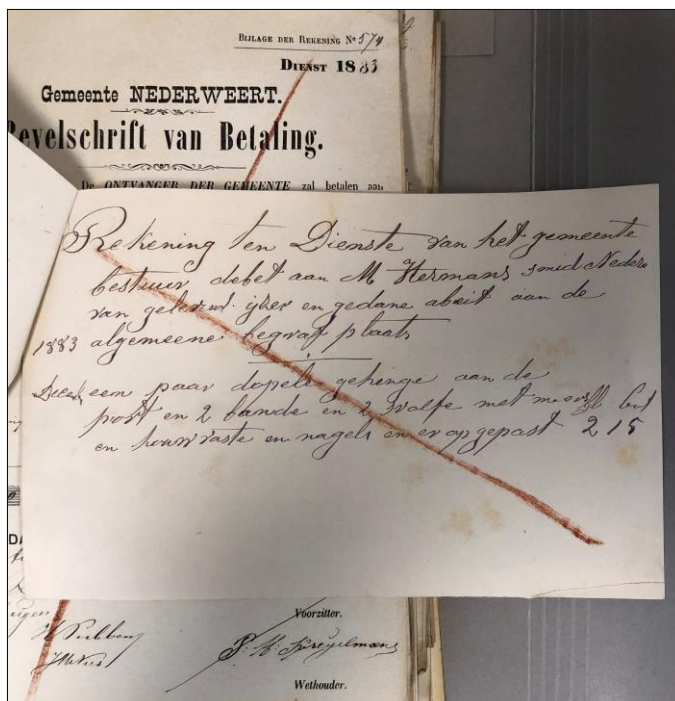 BIJLAGE DER REKENING No 574
DIENST 1883
Gemeente NEDERWEERT.
Bevelschrift van Betaling.
De ONTVANGER DER GEMEENTE zal betalen aan
Rekening ten Dienste van het gemeente
bestuur debet aan M Hermans smid Neder
van gelevert ijser en gedane abeit aan de
1883 algemeene begraf plaats
een paar dopele gehinge aan de
port en 2 bande en 2 wolfe met
en houwvaste en nagels en er op gepast 2 15
Voorzitter.
Wethouder.